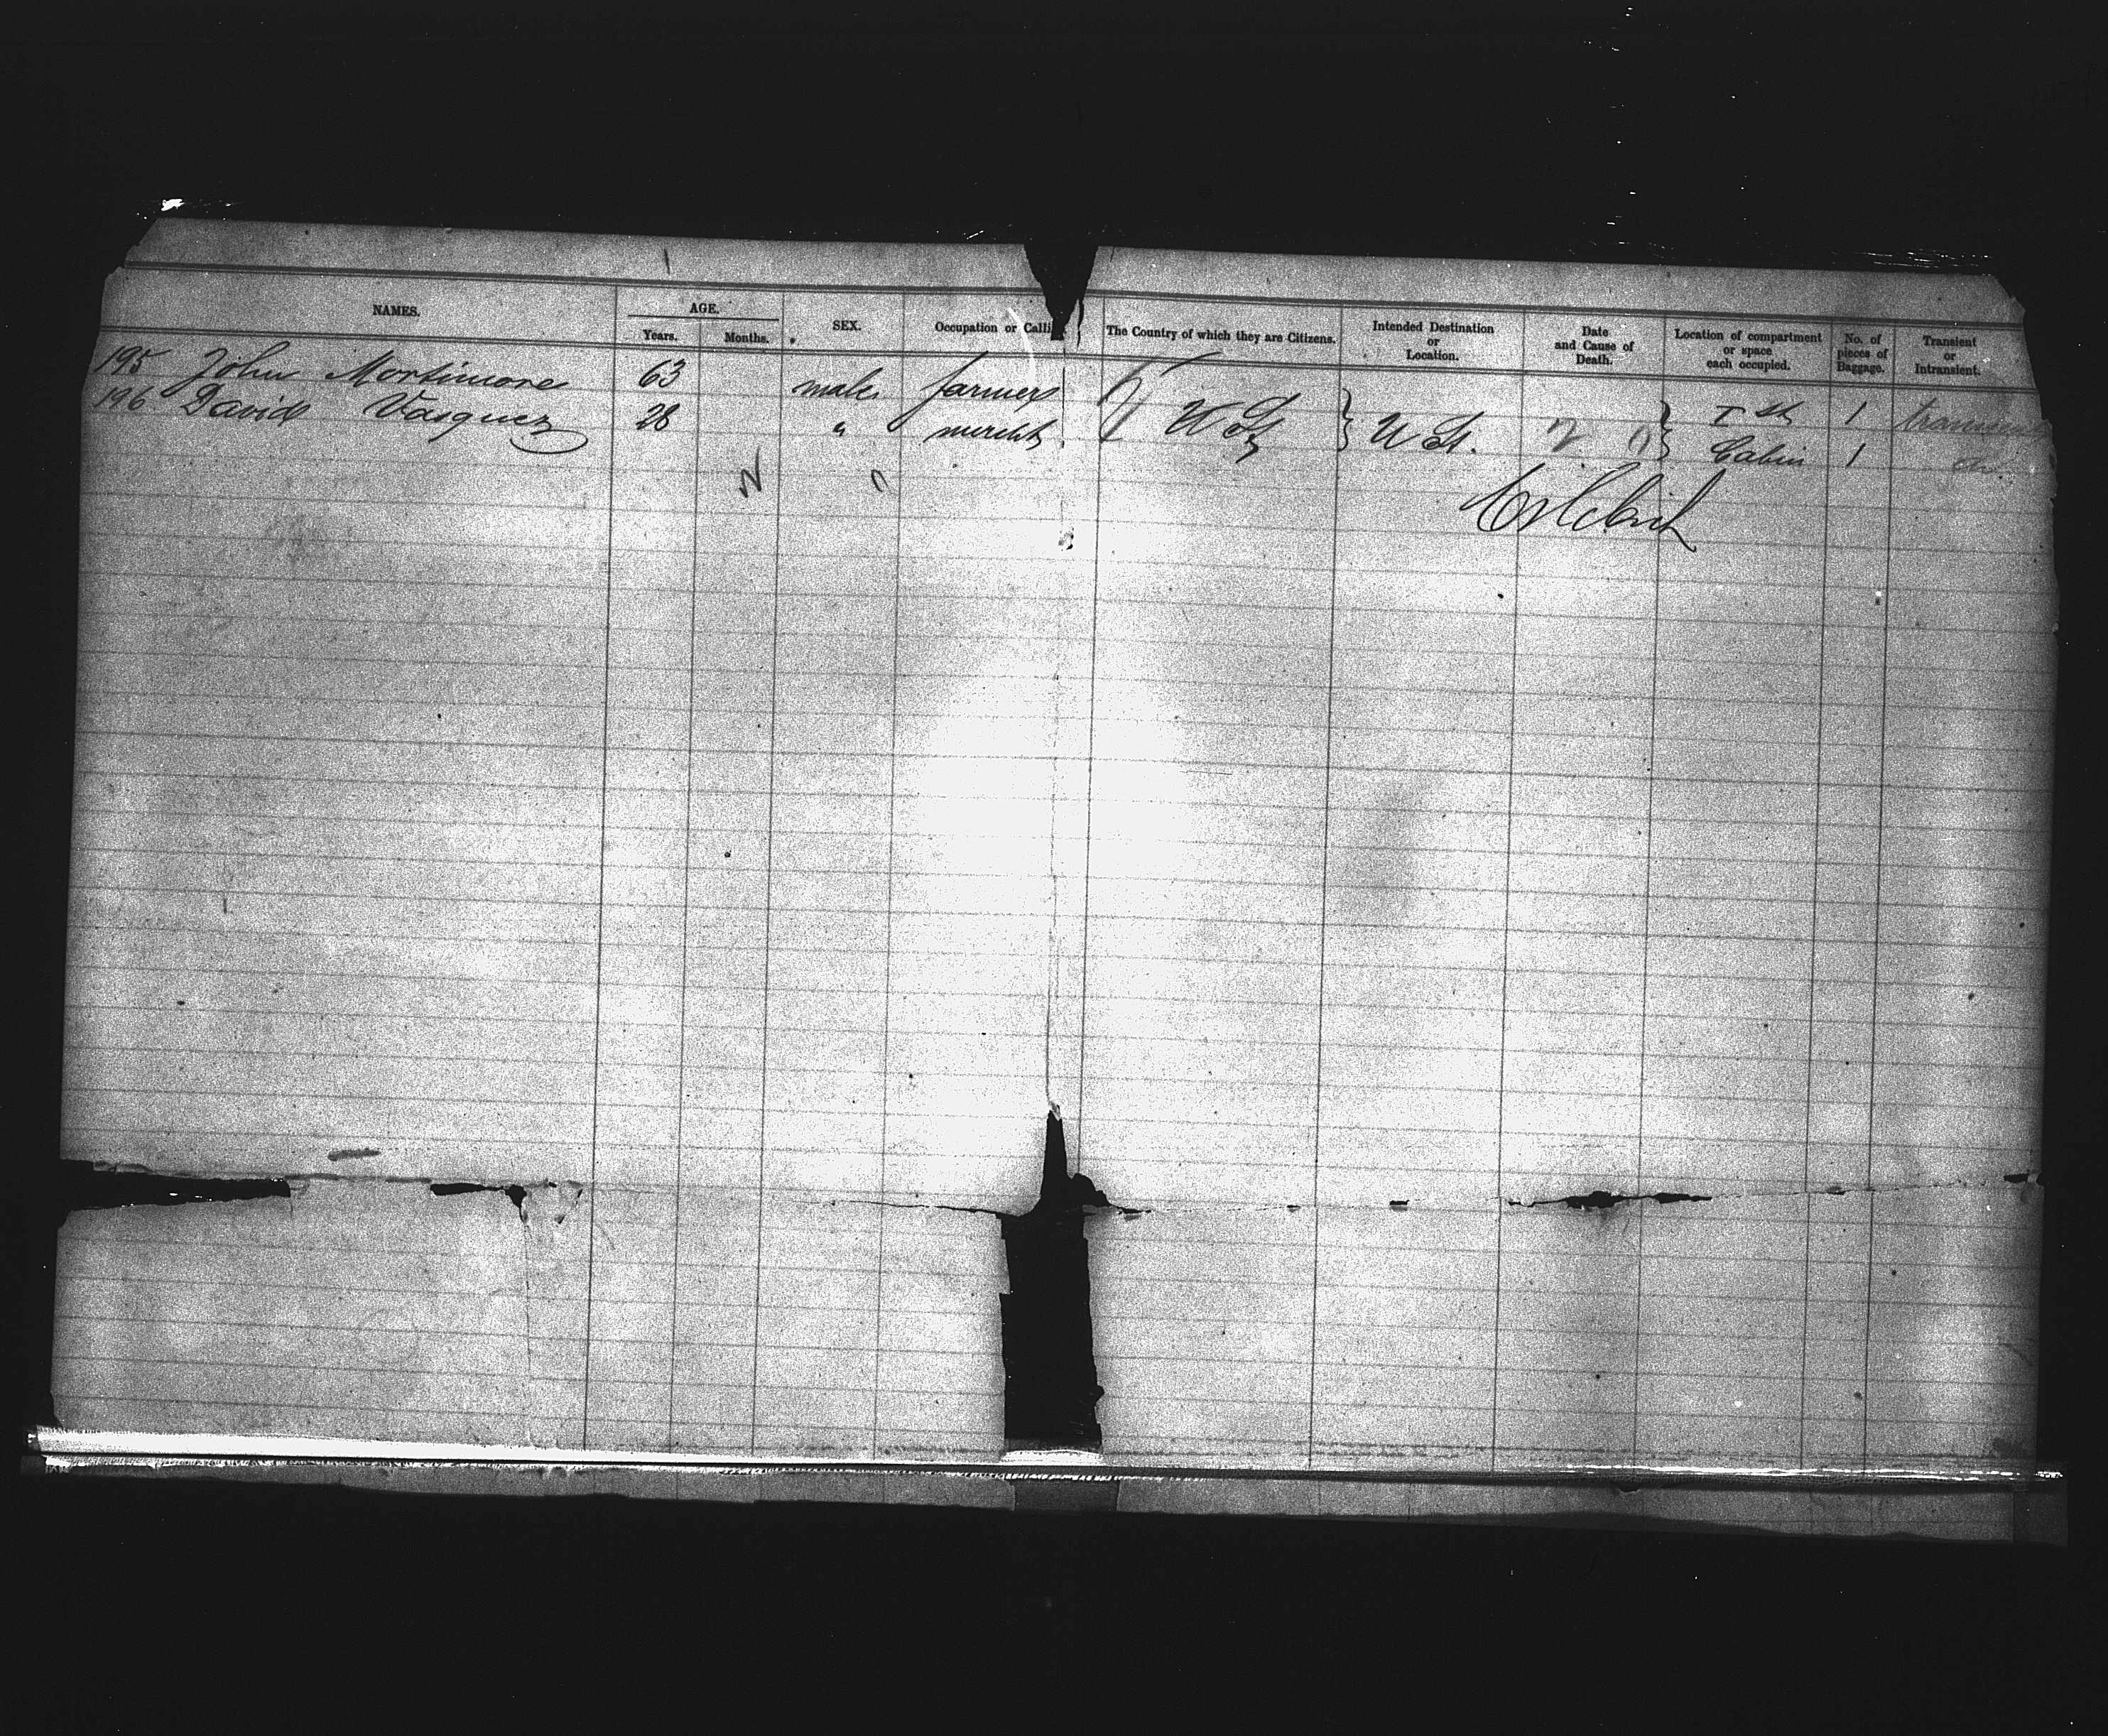 NAMES. AGE. Years. Months. SEX. Occupation or Calli The Country of which they are Citizens. Intended Destination or Location. Date and Cause of Death. Location of compartment or space each occupied. No. of pieces of Baggage. Transient or Intransient.
195 John Mortimore 63 male farmer 1
196 David Vasquez 28 " U St. Cabin 1